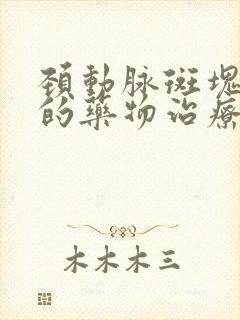 頚動脉斑塊
的藥物治療
木木木三